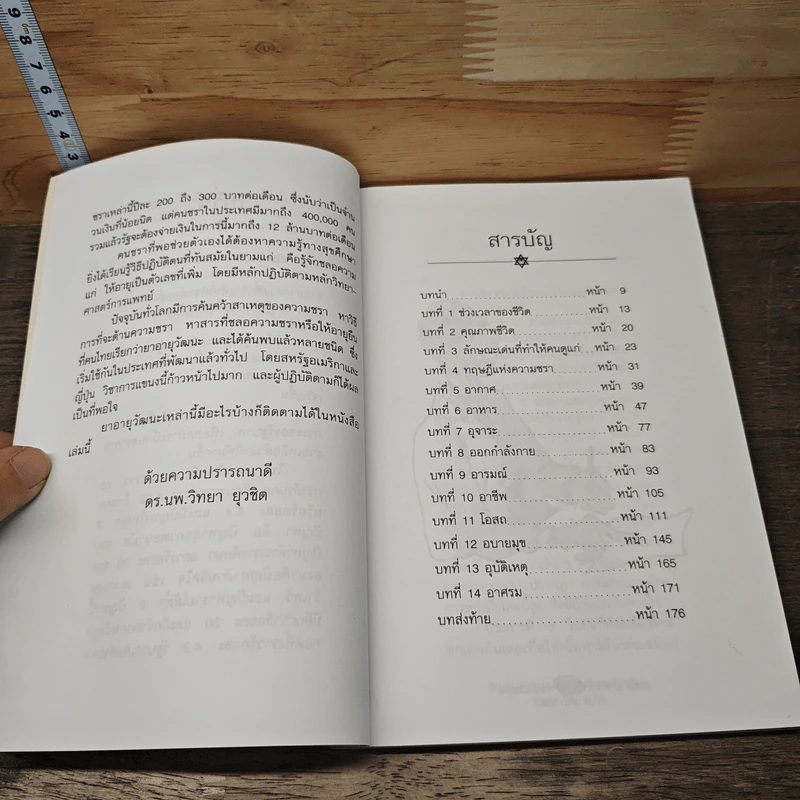 9
8
7
6
5
4
3
ชราเหล่านี้ปีละ 200 ถึง 300 บาทต่อเดือน ซึ่งนับว่าเป็นจำน
วนเงินที่น้อยนิด แต่คนชราในประเทศมีมากถึง 400,000 คน
รวมแล้วรัฐจะต้องจ่ายเงินในการนี้มากถึง 12 ล้านบาทต่อเดือน
คนชราที่พอช่วยตัวเองได้ต้องหาความรู้ทางสุขศึกษา
ยิ่งได้เรียนรู้วิธีปฏิบัติตนที่ทันสมัยในยามแก่ คือรู้จักชลอความ
แก่ ให้อายุเป็นตัวเลขที่เพิ่ม โดยมีหลักปฏิบัติตามหลักวิทยา-
ศาสตร์การแพทย์
ปัจจุบันทั่วโลกมีการค้นคว้าสาเหตุของความชรา หาวิธี
การที่จะต้านความชรา หาสารที่ชลอความชราหรือให้อายุยืน
ที่คนไทยเรียกว่ายาอายุวัฒนะ และได้ค้นพบแล้วหลายชนิด ซึ่ง
เริ่มใช้กันในประเทศที่พัฒนาแล้วทั่วไป โดยสหรัฐอเมริกาและ
ญี่ปุ่น วิชาการแขนงนี้ก้าวหน้าไปมาก และผู้ปฏิบัติตามก็ได้ผล
เป็นที่พอใจ
ยาอายุวัฒนะเหล่านี้มีอะไรบ้างก็ติดตามได้ในหนังสือ
เล่มนี้
ด้วยความปรารถนาดี
ดร.นพ.วิทยา ยุวชิต
สารบัญ
บทนำ หน้า 9
บทที่ 1 ช่วงเวลาของชีวิต หน้า 13
บทที่ 2 คุณภาพชีวิต หน้า 20
บทที่ 3 ลักษณะเด่นที่ทำให้คนดูแก่ หน้า 23
บทที่ 4 ทฤษฎีแห่งความชรา หน้า 31
บทที่ 5 อากาศ หน้า 39
บทที่ 6 อาหาร หน้า 47
บทที่ 7 อุจาระ หน้า 77
บทที่ 8 ออกกำลังกาย หน้า 83
บทที่ 9 อารมณ์ หน้า 93
บทที่ 10 อาชีพ หน้า 105
บทที่ 11 โอสถ หน้า 111
บทที่ 12 อบายมุข หน้า 145
บทที่ 13 อุบัติเหตุ หน้า 165
บทที่ 14 อาศรม หน้า 171
บทส่งท้าย หน้า 176